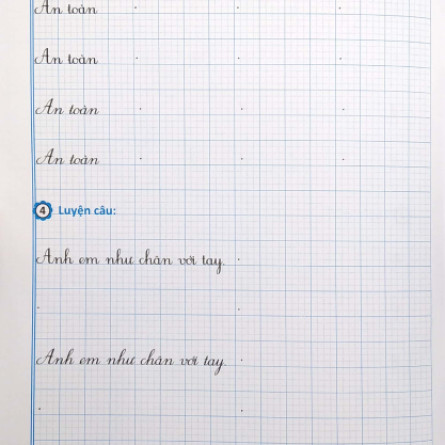 An toàn
An toàn
An toàn
An toàn
4 Luyện câu:
Anh em như chân với tay.
Anh em như chân với tay.